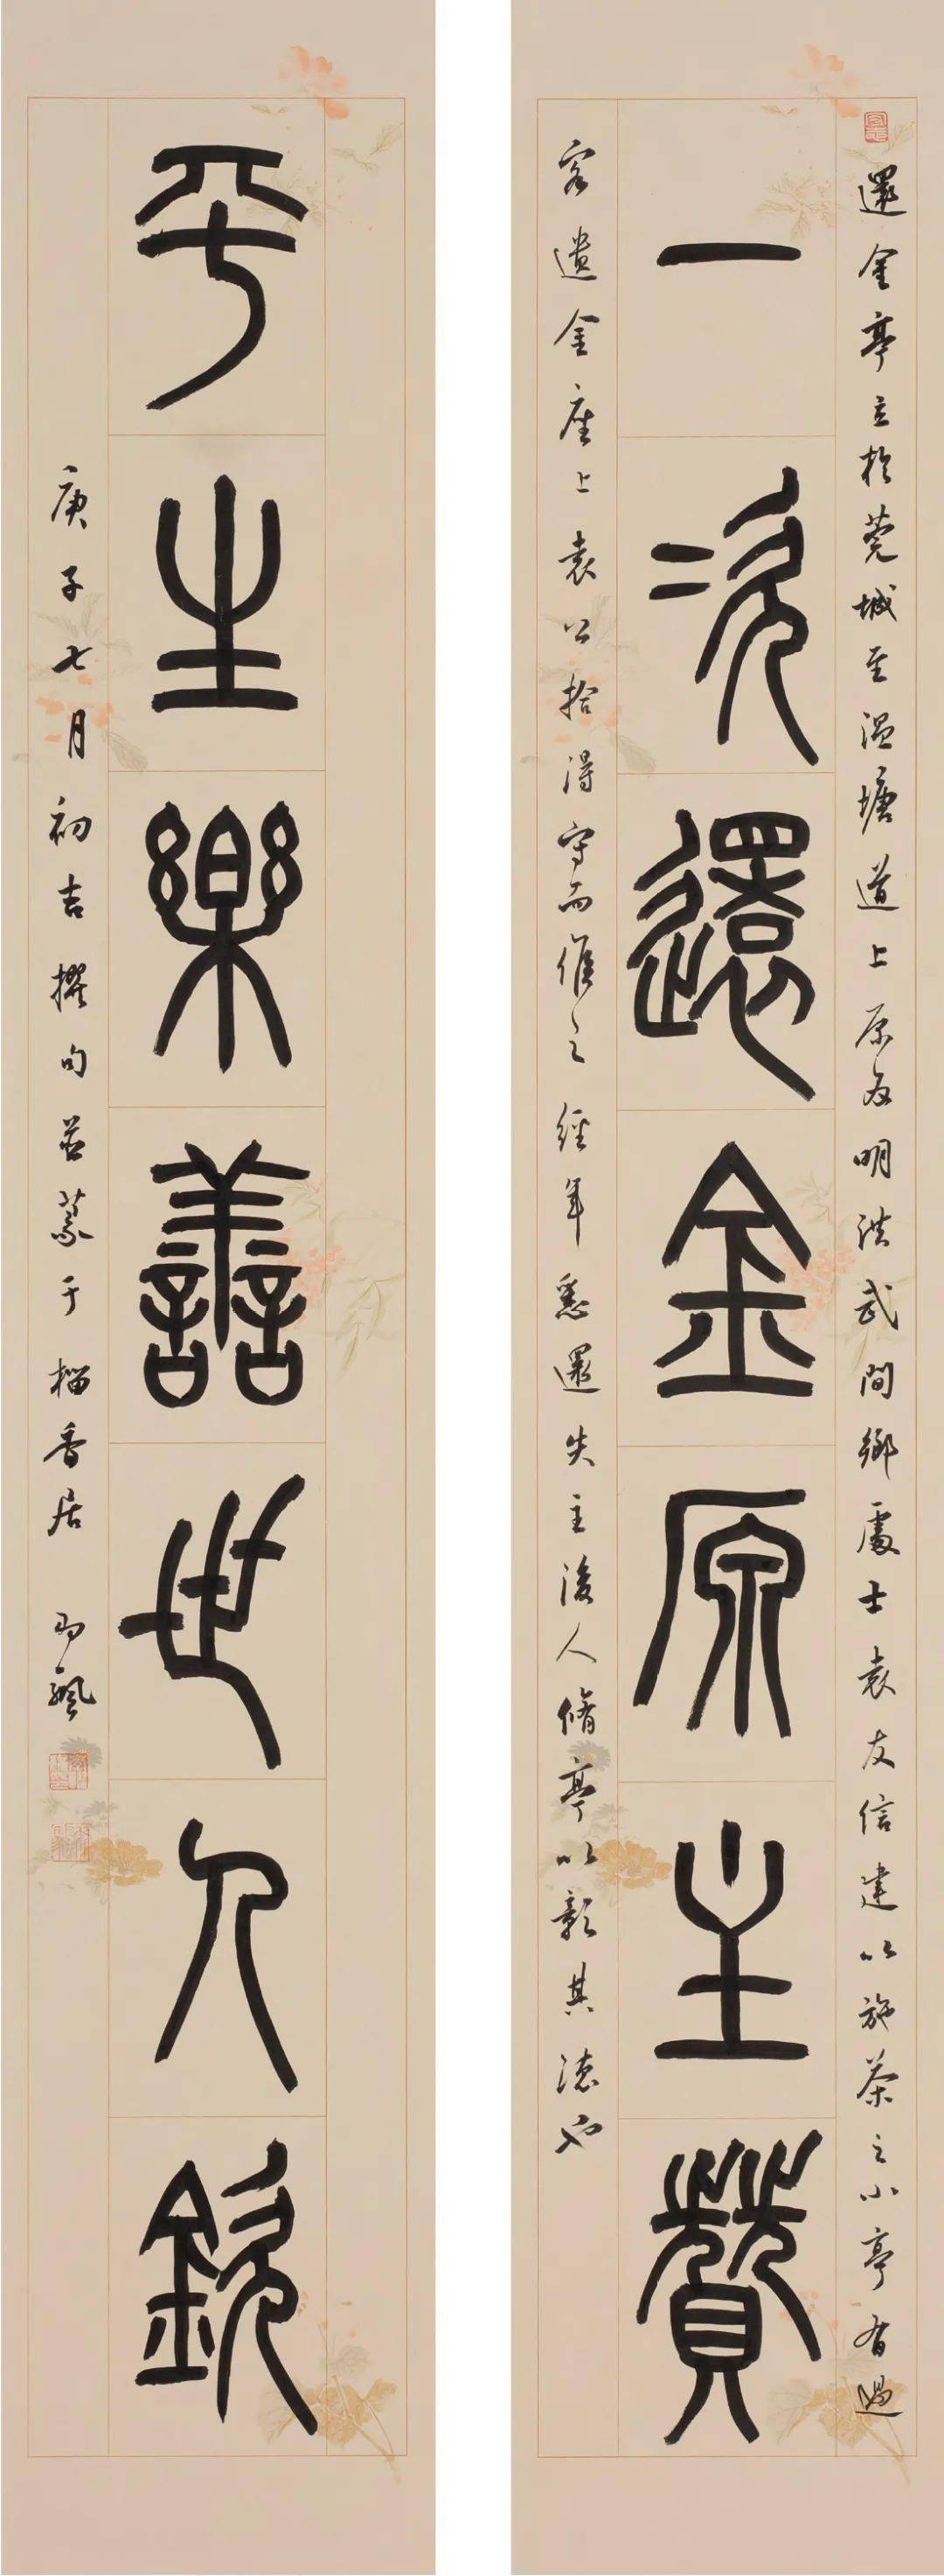 還金亭立於莞城至溫塘道上原為明洪武間鄉處士袁友信建以施茶之小亭有過
一次還金原主贊
客遺金座上袁公拾得守而候之經年悉還失主後人脩亭以彰其德也
平生樂善世人欽
庚子七月初吉撰句並篆于榴香居